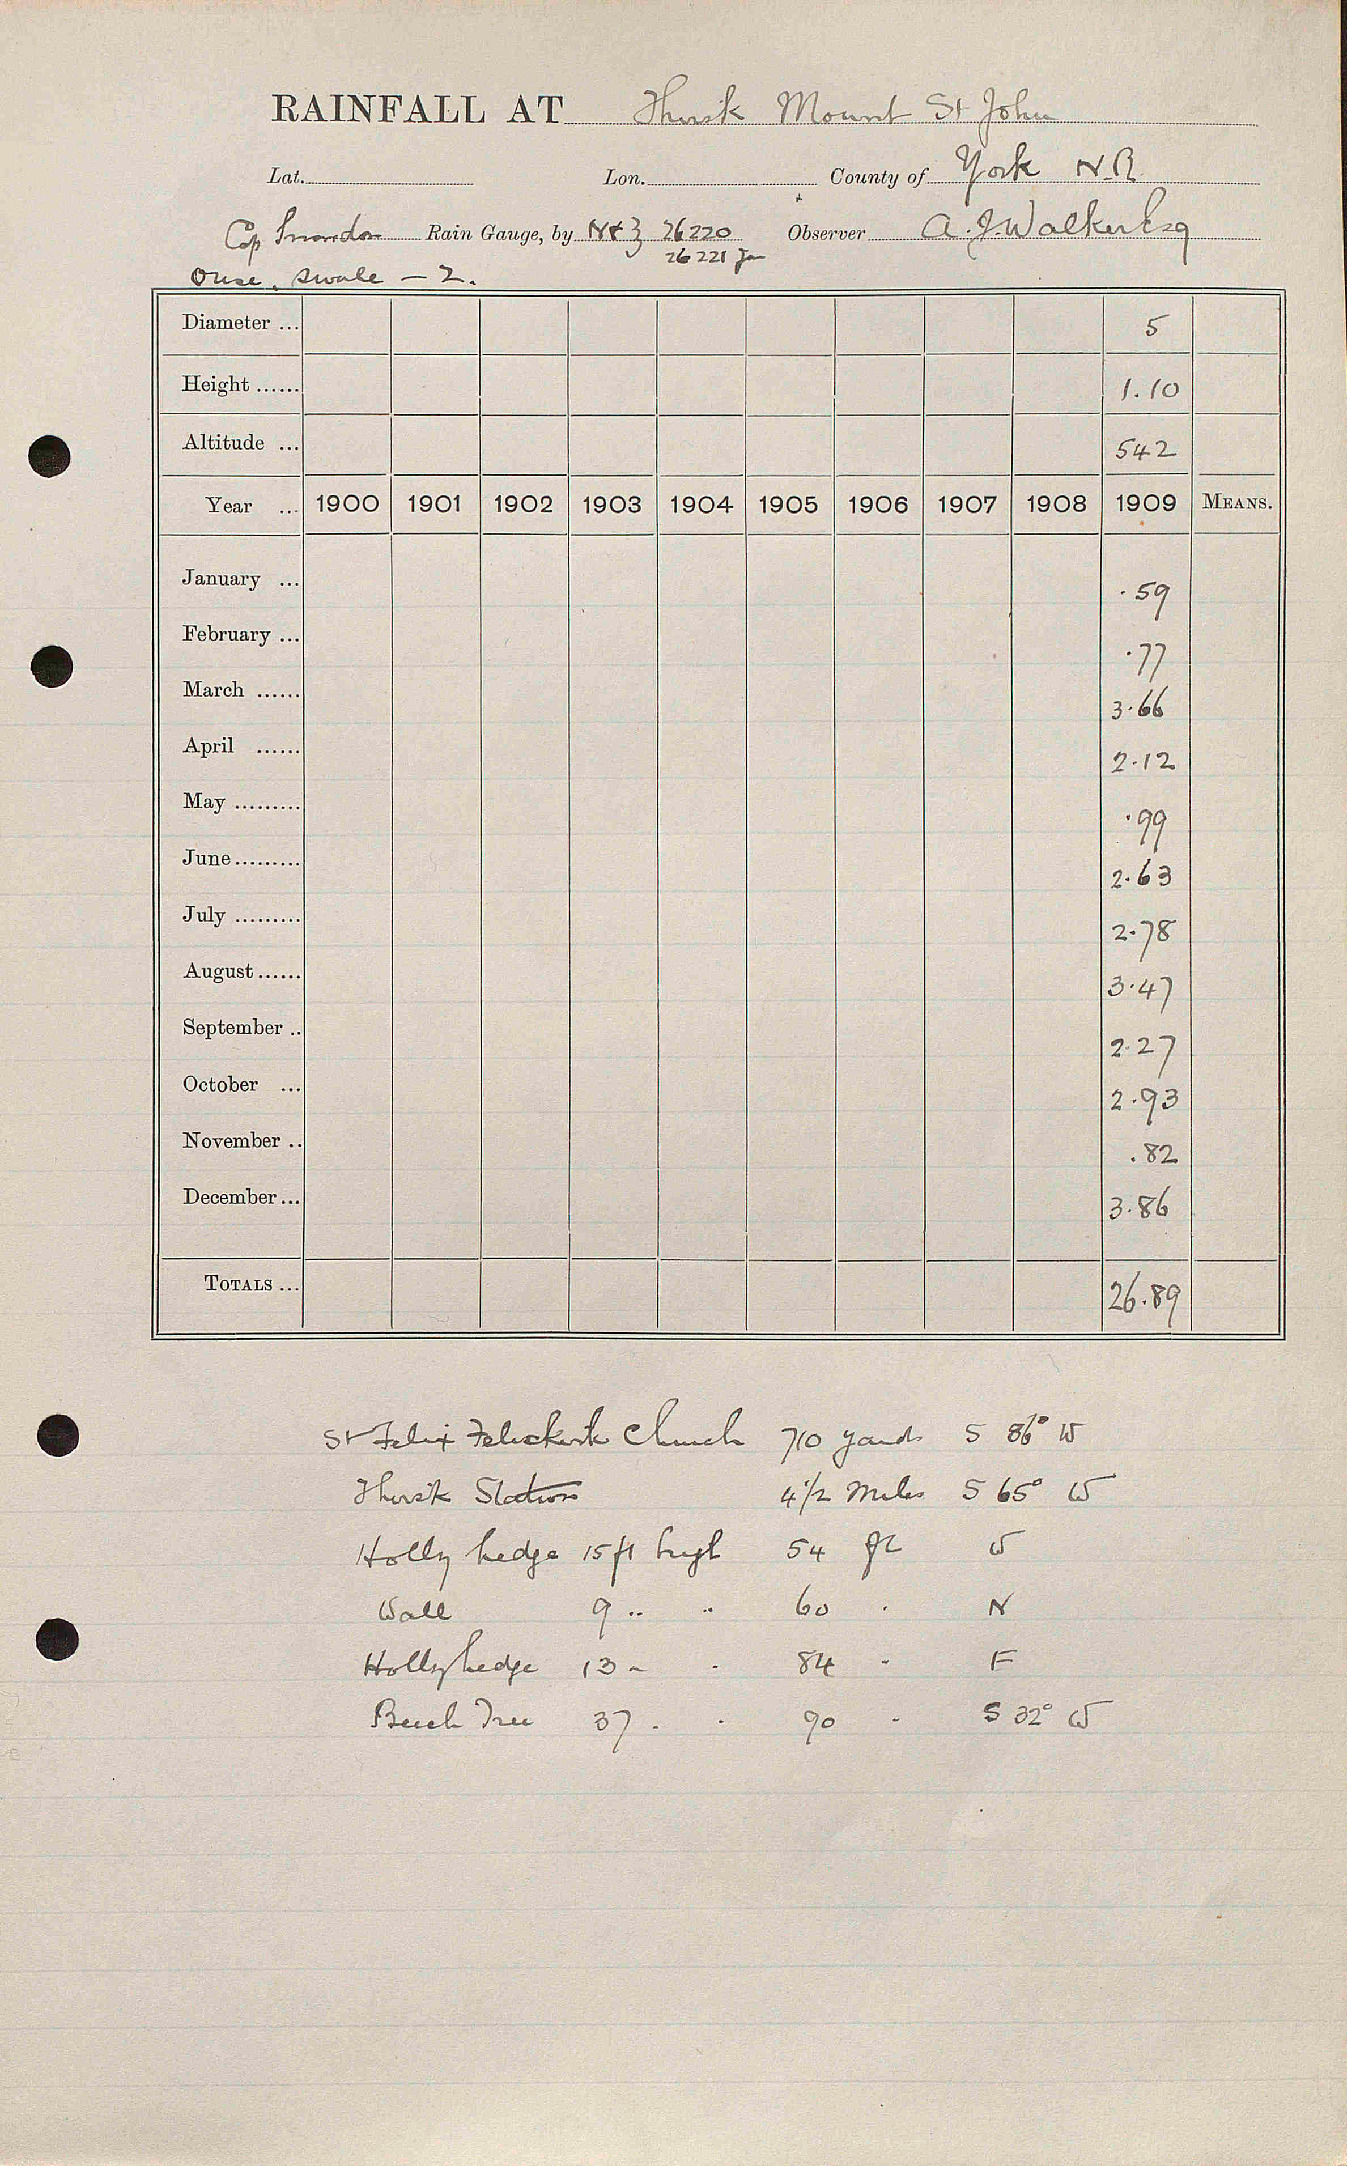 RAINFALL AT Thirsk Mount St John
Lat. Lon. County of York N.R.
Cop Snowdon Rain Gauge, by N & Z 26220 Observer A. J. Walker Esq
26221 Jan
Ouse, Swale – 2.
Diameter ... 5
Height ...... 1.10
Altitude ... 542
Year ... 1900 1901 1902 1903 1904 1905 1906 1907 1908 1909 MEANS.
January ... .59
February ... .77
March ...... 3.66
April ...... 2.12
May ......... .99
June ......... 2.63
July ......... 2.78
August ...... 3.47
September .. 2.27
October ... 2.93
November .. .82
December ... 3.86
TOTALS ... 26.89
St Felix Felixkirk Church 710 yards S 86° W
Thirsk Station 4 1/2 miles S 65° W
Holly hedge 15 ft high 54 ft W
Wall 9 " " 60 " N
Holly hedge 13 " " 84 " E
Beech Tree 37 " " 90 " S 32° W